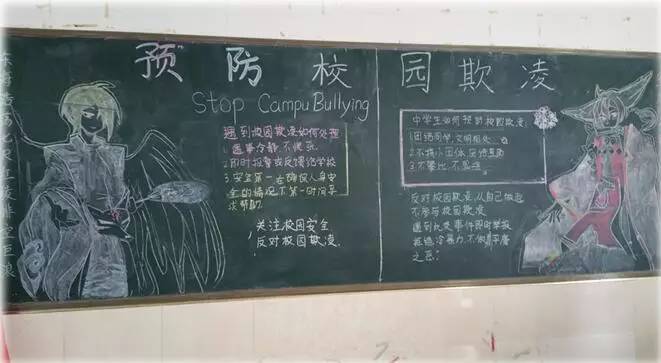 预防校园欺凌
Stop Campu Bullying
遇到校园欺凌如何处理
1.遇事冷静,不慌乱
2.即时报警或反馈给学校
3.安全第一,在确保人身安
全的情况下第一时间寻
求帮助.
关注校园安全
反对校园欺凌.
中学生如何预防校园欺凌:
1.团结同学,文明相处
2.不搞小团体,团结互助
3.不攀比,不
反对校园欺凌,从自己做起
不参与校园欺凌
遇到此类事件即时举报
拒绝冷暴力,不做平庸
之恶!